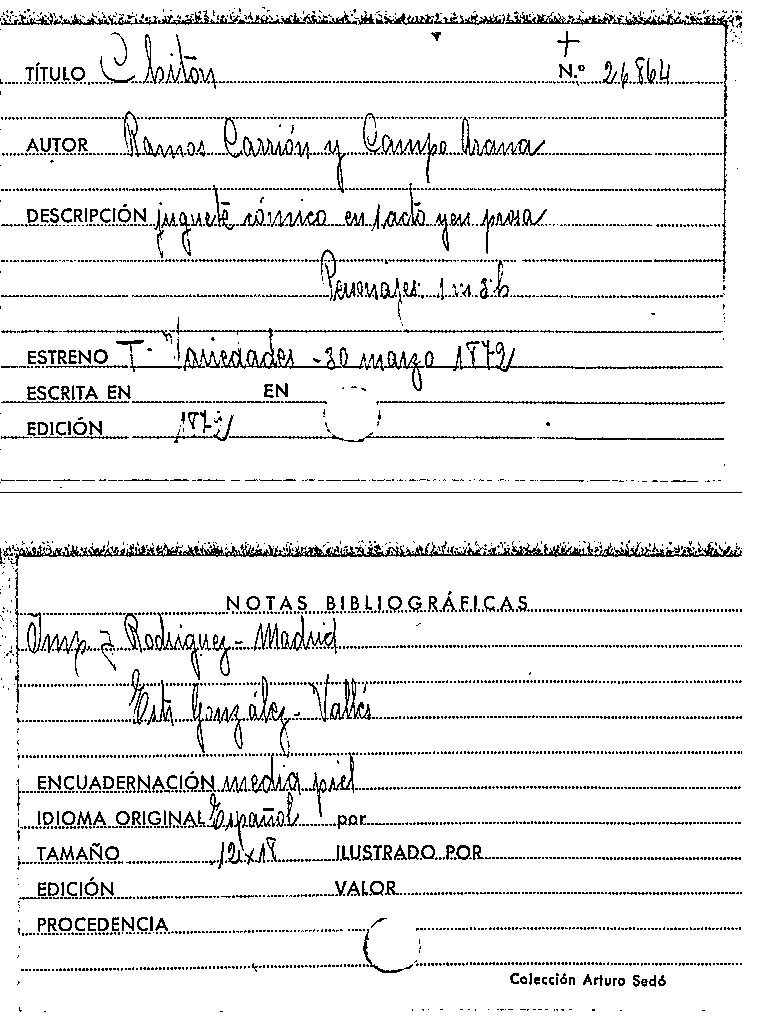 TÍTULO Chitón
+
N.º 26864
AUTOR Ramos Carrión y Campo Arana
DESCRIPCIÓN juguete cómico en 1 acto y en prosa
Personajes 1 m 3 h
ESTRENO T. Variedades - 30 marzo 1872
ESCRITA EN EN
EDICIÓN 1872
NOTAS BIBLIOGRÁFICAS
Imp J Rodriguez - Madrid
González - Vallés
ENCUADERNACIÓN media piel
IDIOMA ORIGINAL Español por
TAMAÑO 12 x 18 ILUSTRADO POR
EDICIÓN VALOR
PROCEDENCIA
Colección Arturo Sedó